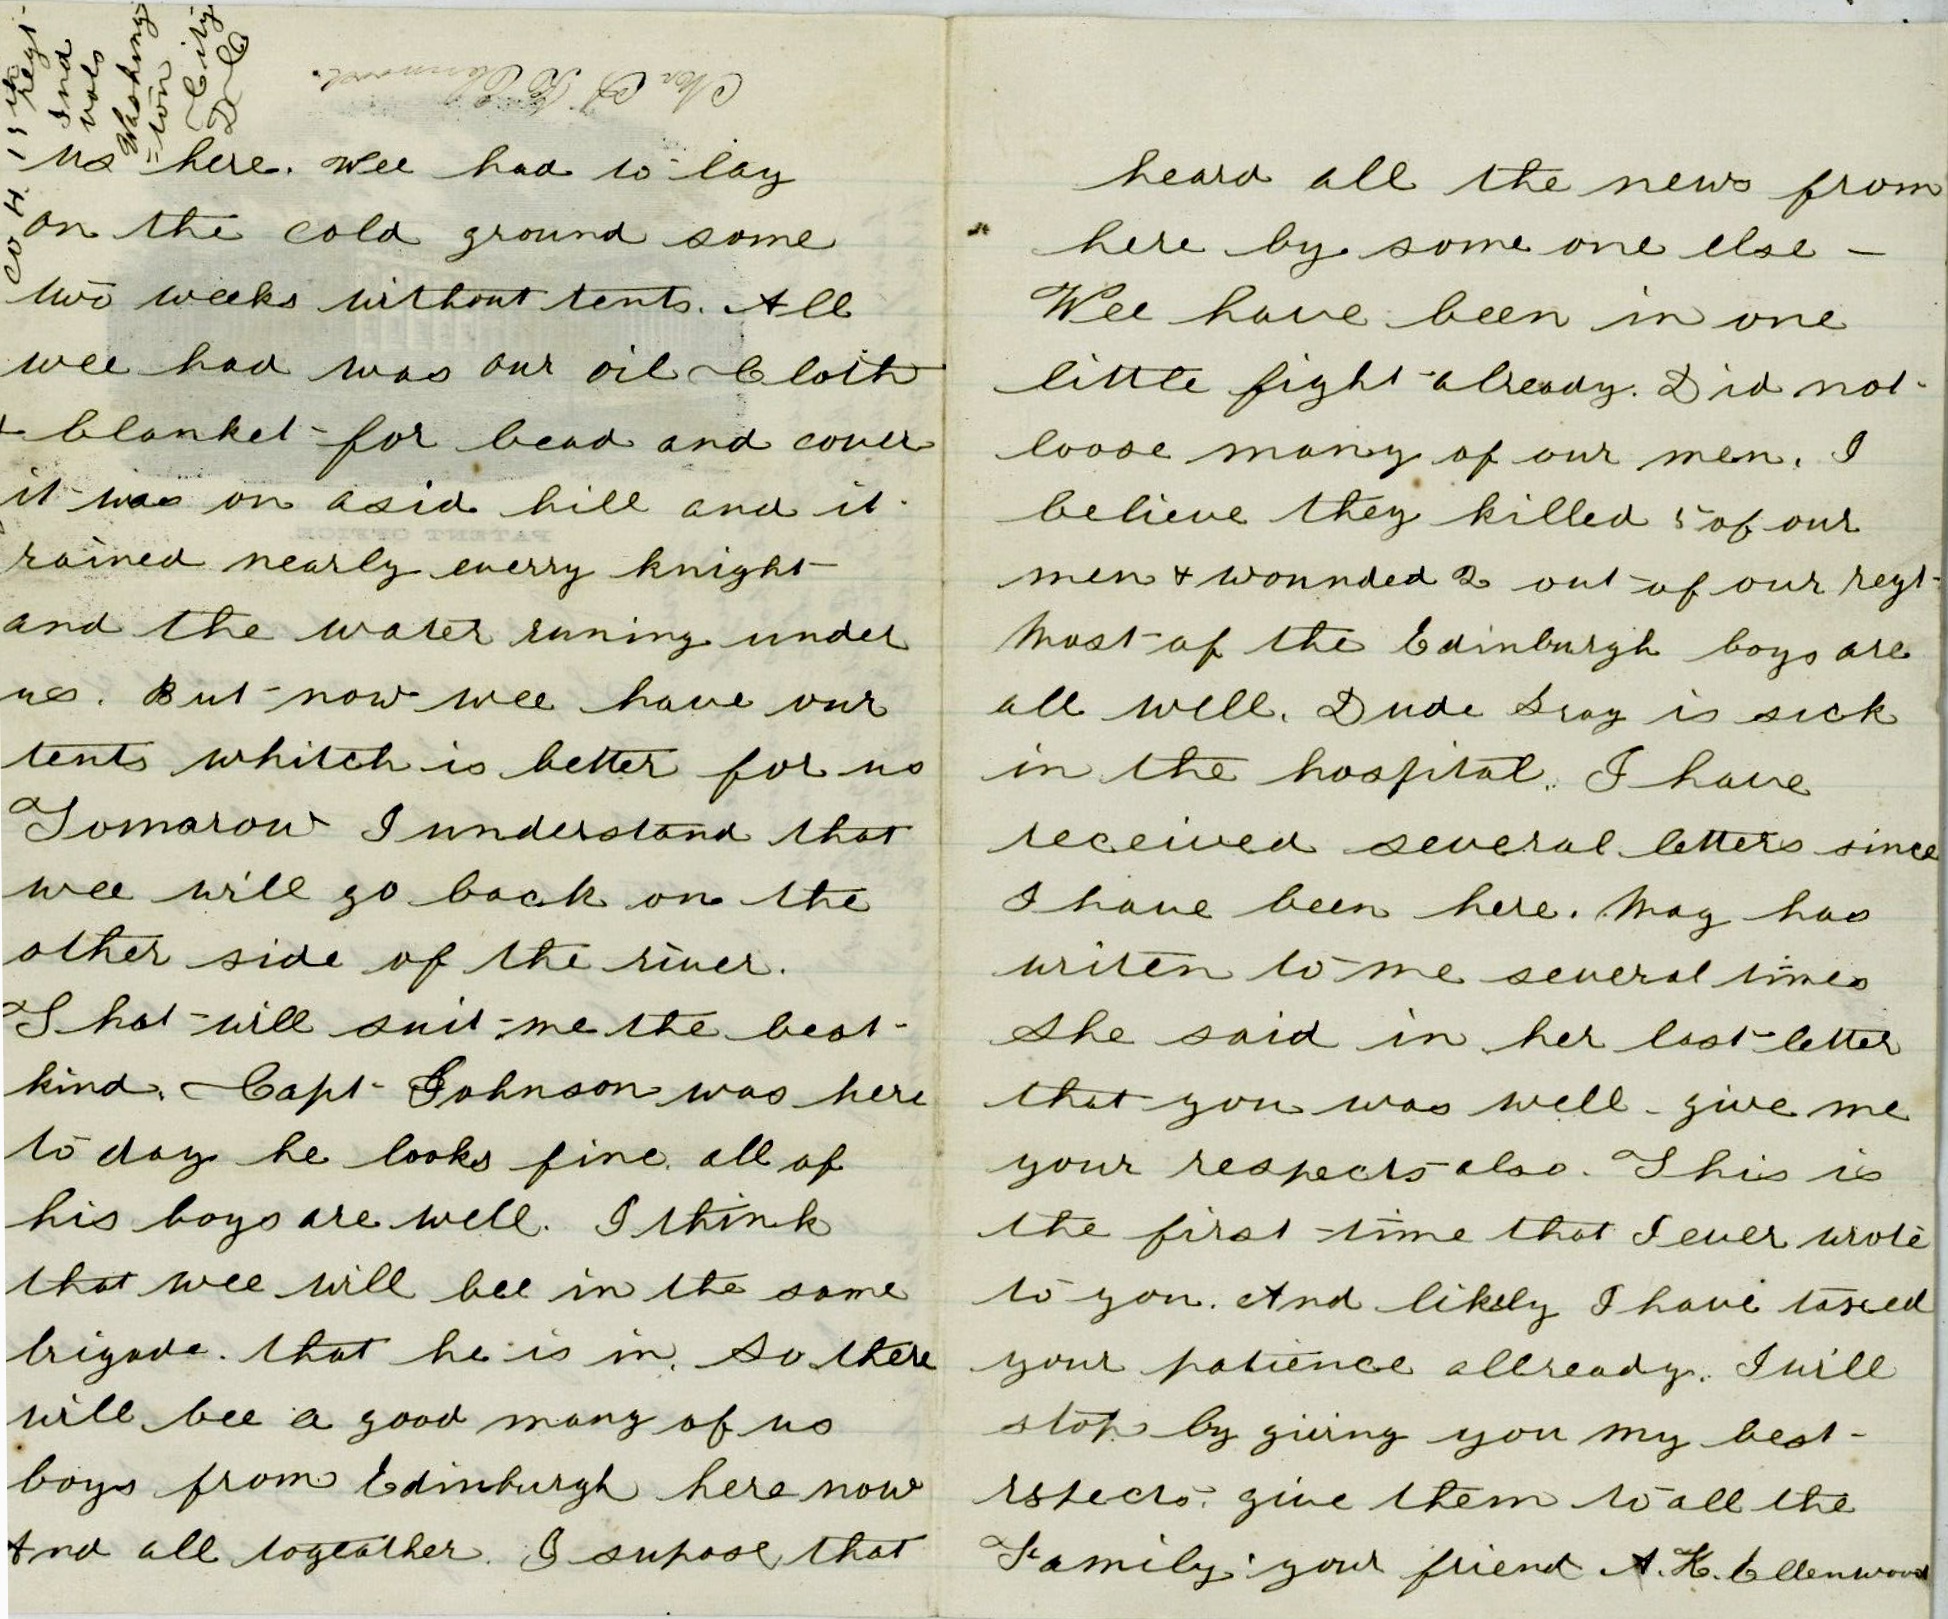 Co H. 19th regt
Ind
vols
Washing
=ton
City
D C
us here. Wee had to lay
on the cold ground some
two weeks without tents. All
wee had was our oil Cloth
+ blanket for bead and cover
it was on a sid hill and it
rained nearly everry knight
and the water runing under
us. But now wee have our
tents whitch is better for us
Tomarow I understand that
wee will go back on the
other side of the river.
That will suit me the best
kind. Capt Johnson was here
to day he looks fine. all of
his boys are well. I think
that wee will bee in the same
brigade. that he is in. So there
will bee a good many of us
boys from Edinburgh here now
And all togeather. I supose that
heard all the news from
here by some one else —
Wee have been in one
little fight already. Did not
loose many of our men. I
believe they killed 5 of our
men + wounded 2 out of our regt
Most of the Edinburgh boys are
all well. Dude Gray is sick
in the hospital. I have
received several letters since
I have been here. Mag has
writen to me several times
She said in her last letter
that you was well - give me
your respects also. This is
the first time that I ever wrote
to you. And likely I have taxed
your patience allready. I will
stop by giving you my best
rspects. give them to all the
Family. your friend A. K. Ellenwood
PATENT OFFICE